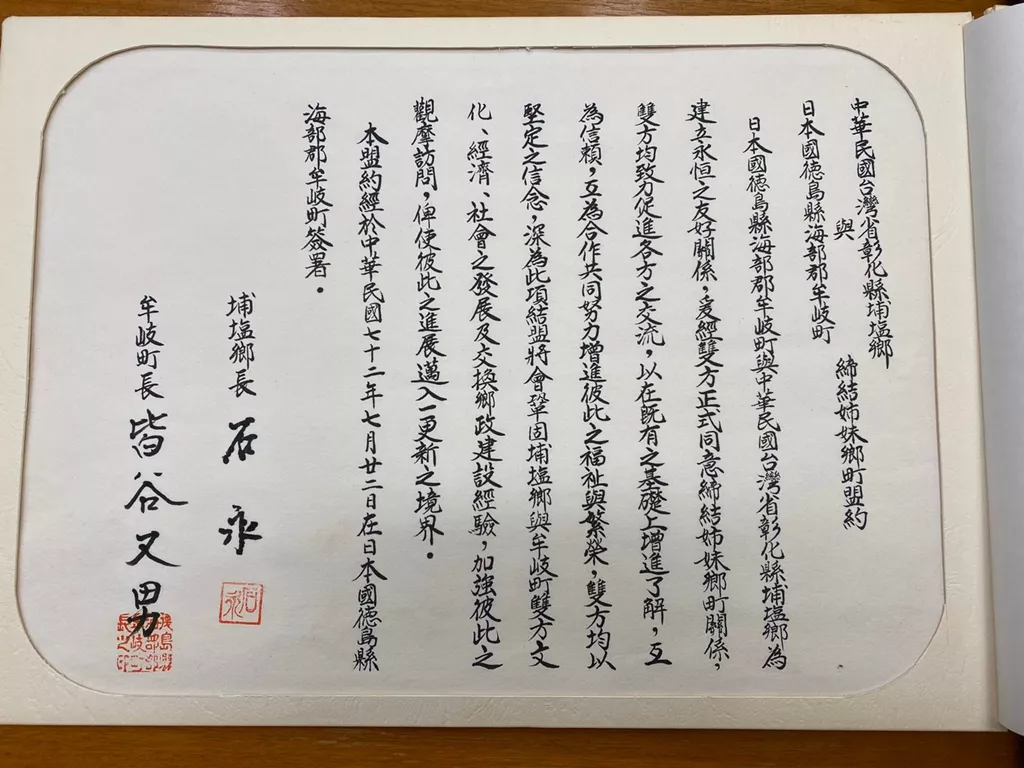 中華民國台灣省彰化縣埔塩鄉
與
日本國徳島縣海部郡牟岐町
締結姉妹鄉町盟約
日本國徳島縣海部郡牟岐町與中華民國台灣省彰化縣埔塩鄉為
建立永恒之友好關係，爰經雙方正式同意締結姉妹鄉町關係，
雙方均致力促進各方之交流，以在既有之基礎上增進了解，互
為信賴，互為合作共同努力增進彼此之福祉與繁榮，雙方均以
堅定之信念，深為此項結盟將會鞏固埔塩鄉與牟岐町雙方文
化、經濟、社會之發展及交換鄉政建設經驗，加強彼此之
觀摩訪問，俾使彼此之進展邁入一更新之境界。
本盟約經於中華民國七十二年七月廿二日在日本國徳島縣
海部郡牟岐町簽署。
埔塩鄉長 石永
石永
牟岐町長 皆谷又男